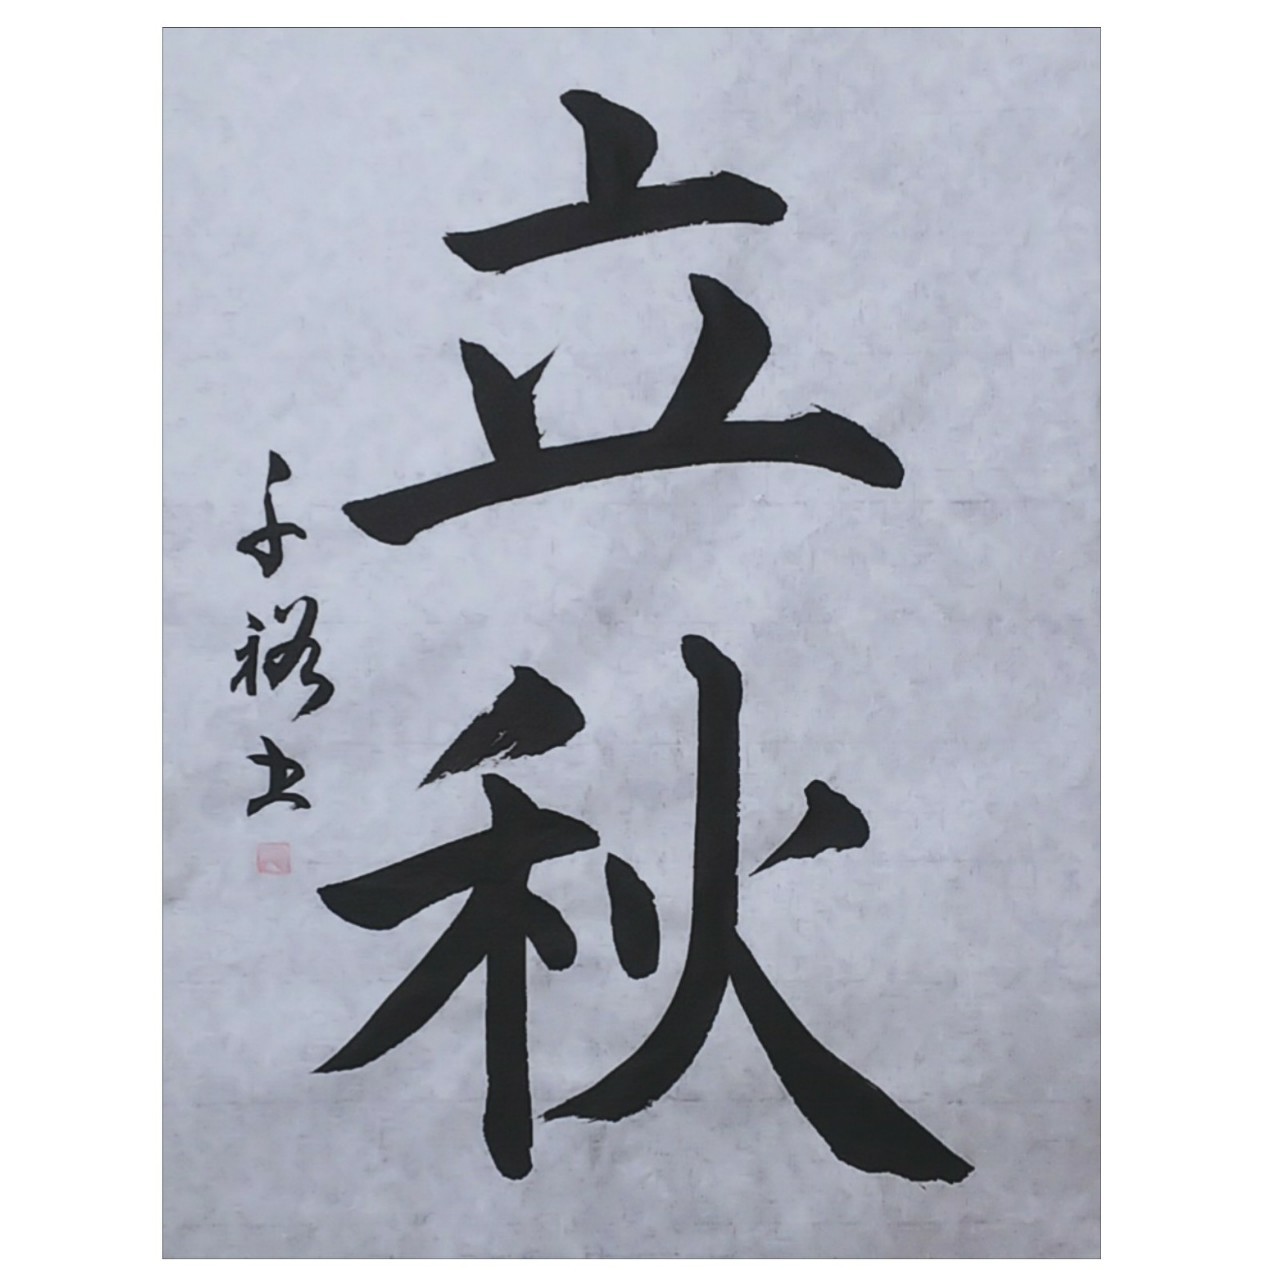 立秋
千裕书